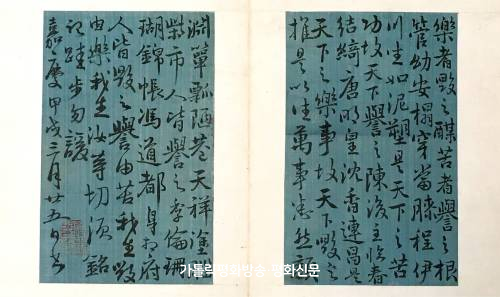 樂者毁之媒苦者譽之根
管幼安榻穿當膝程伊
川坐如泥塑是天下之苦
功故天下譽之陳後主臨春
結綺唐明皇沈香連昌是
天下之樂事故天下毁之
推是以往萬事悉然
淵簞瓢陋巷天祥
柴市人皆譽之季倫珊
瑚錦帳馮道都府
人皆毁之譽由苦我生毁
由樂我生汝等切須銘
記跬步勿諼
嘉慶甲戌三月廿五日書
가톨릭평화방송·평화신문